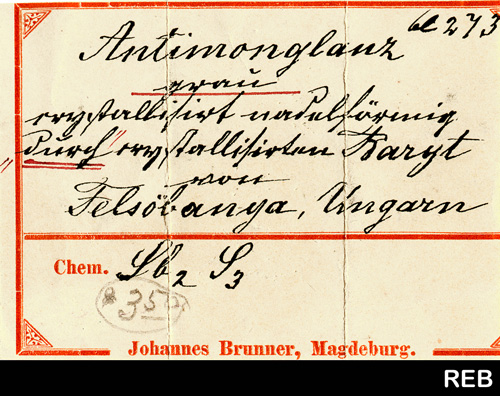 273
Antimonglanz
grau
crystallisirt nadelförmig
„durch“ crystallisirten Baryt
von
Felsöbanya, Ungarn
Chem. Sb2 S3
350
Johannes Brunner, Magdeburg.
REB